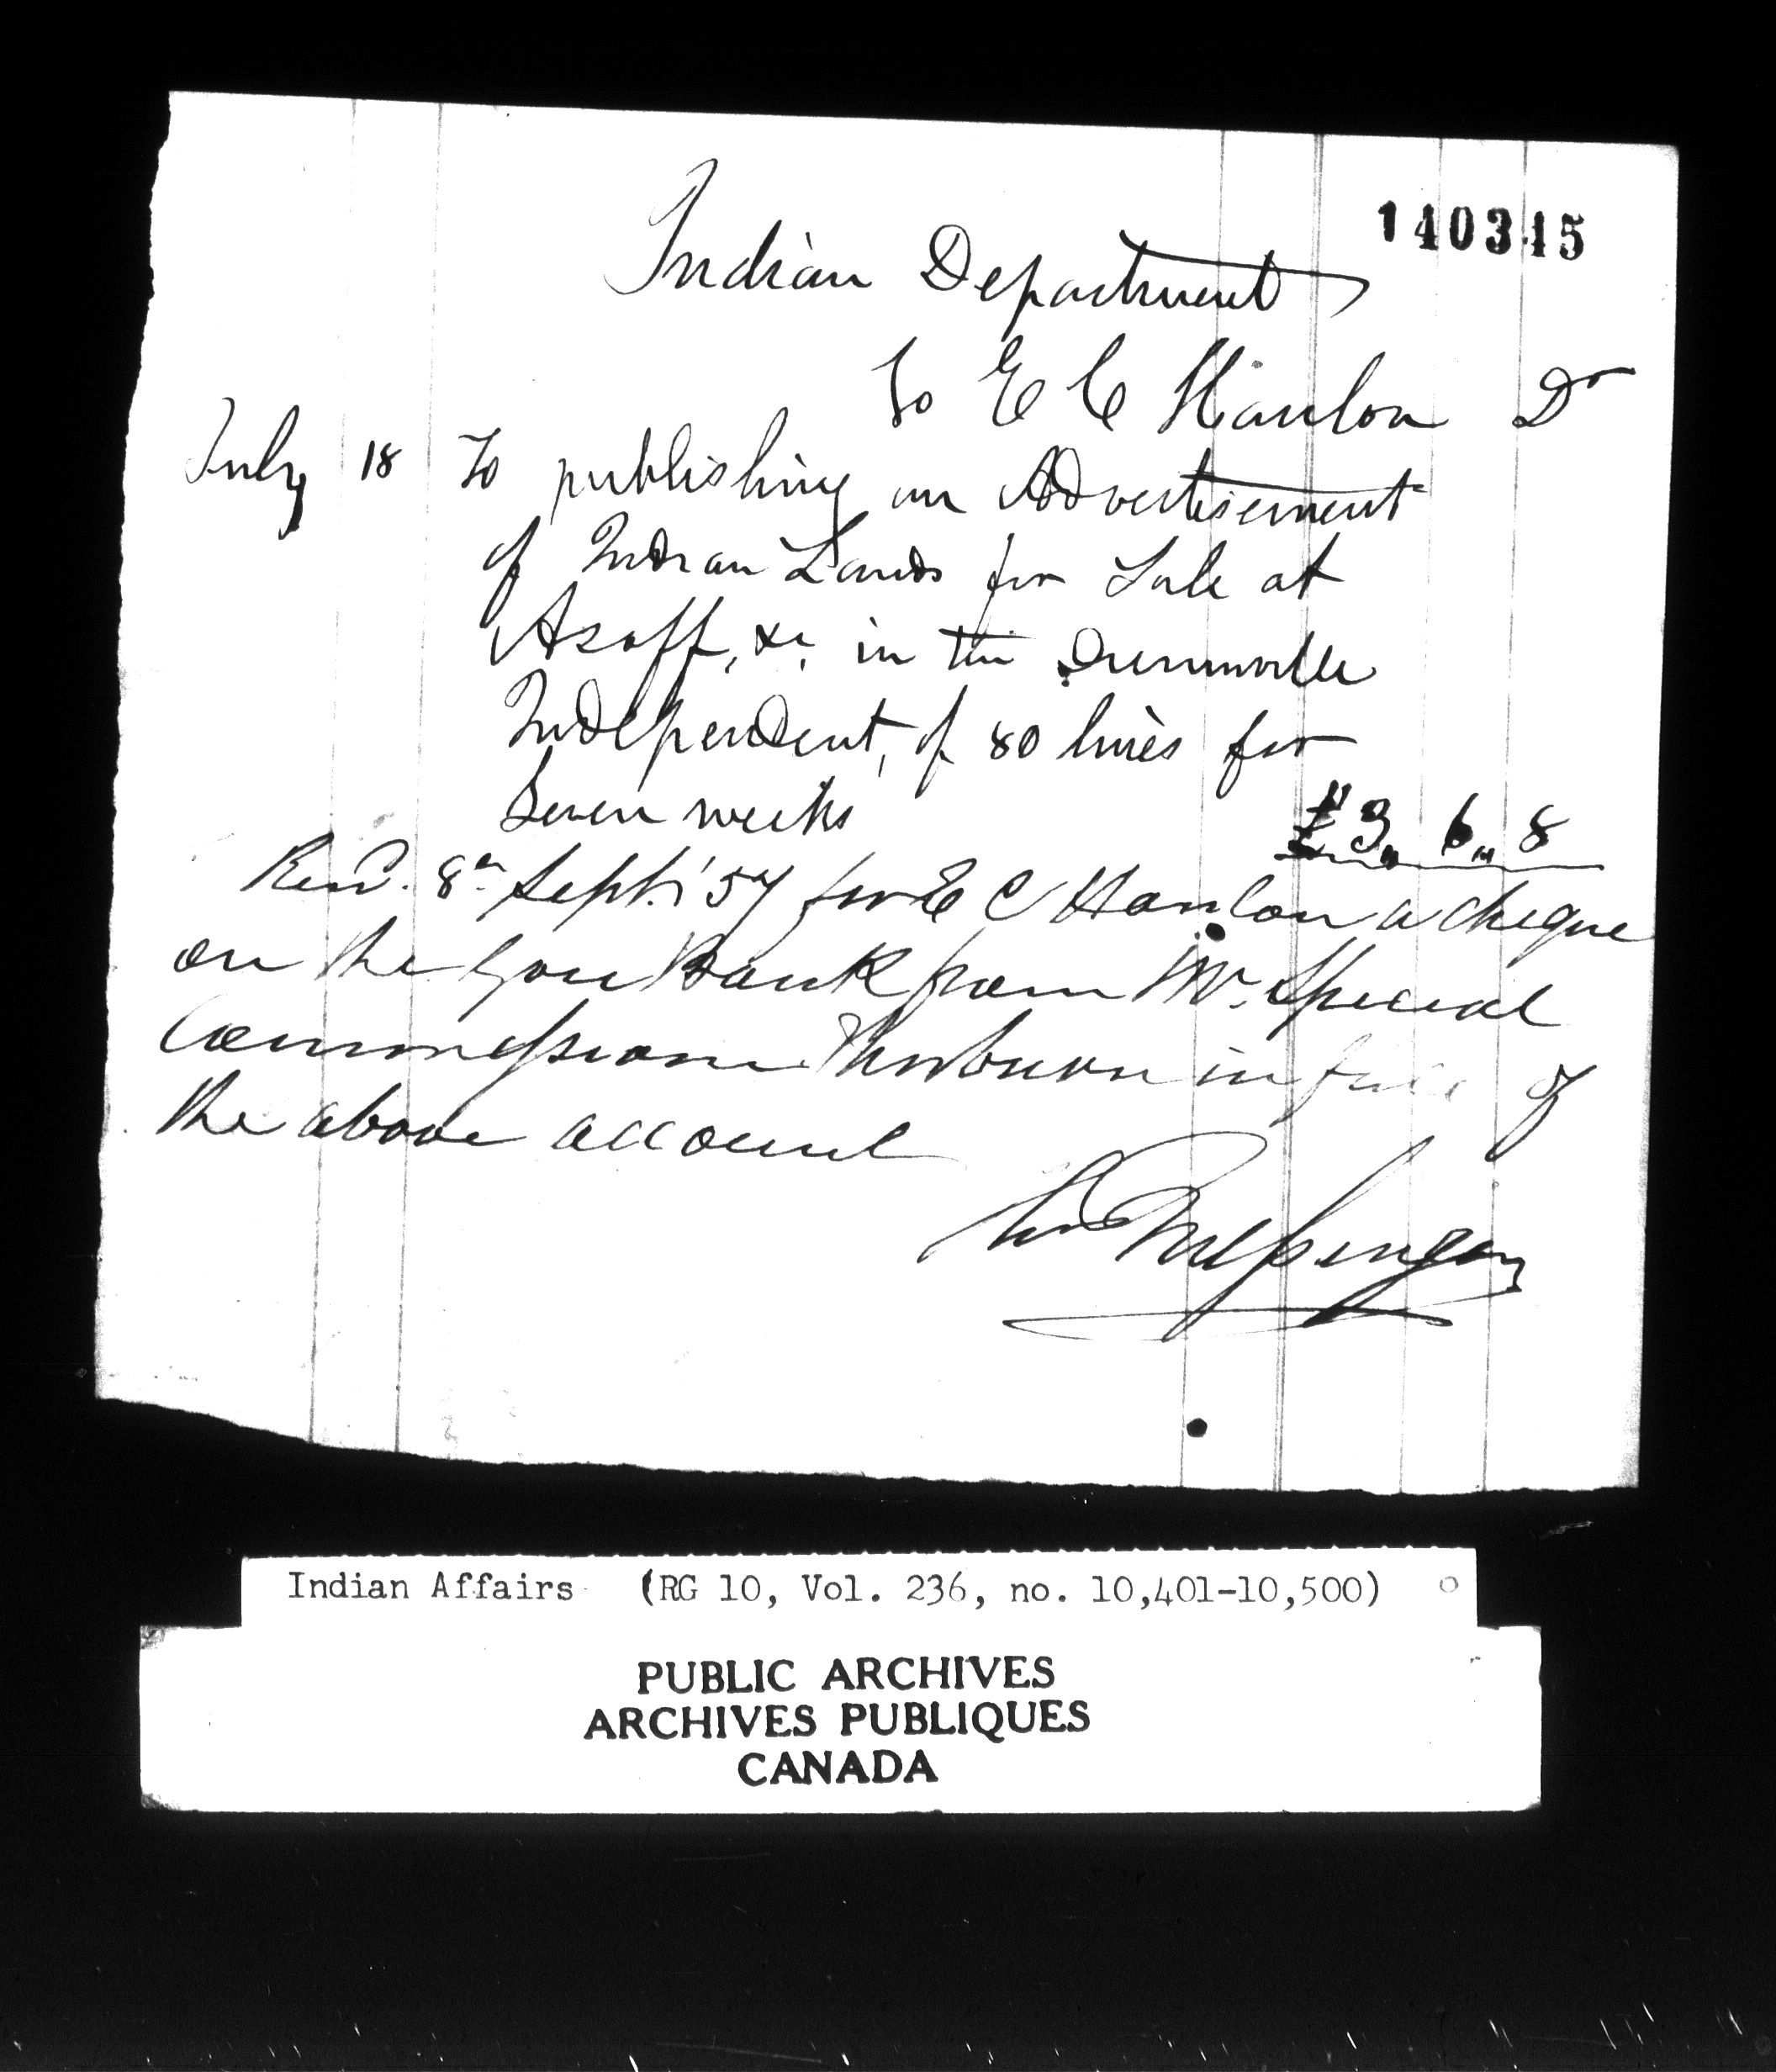 140315
Indian Department
To E C Hanlon Dr
July 18 To publishing an Advertisement
of Indian Lands for Sale at
Asoff, &c, in the Dunnville
Independent, of 80 lines for
Seven weeks £3 " 6 " 8
Recd. 8th Sept. '57 for E C Hanlon a cheque
on the Gore Bank from Mr. Special
Commissioner Thorburn in full of
the above account
Indian Affairs (RG 10, Vol. 236, no. 10,401-10,500)
PUBLIC ARCHIVES
ARCHIVES PUBLIQUES
CANADA